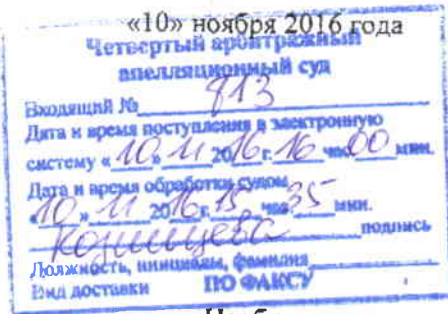 «10» ноября 2016 года
Четвертый арбитражный
апелляционный суд
Входящий № 813
Дата и время поступления в электронную
систему «10» 11 2016 г. 16 час. 00 мин.
Дата и время обработки судом
«10» 11 2016 г. 15 час. 35 мин.
подпись
Должность, инициалы, фамилия
Вид доставки ПО ФАКСУ